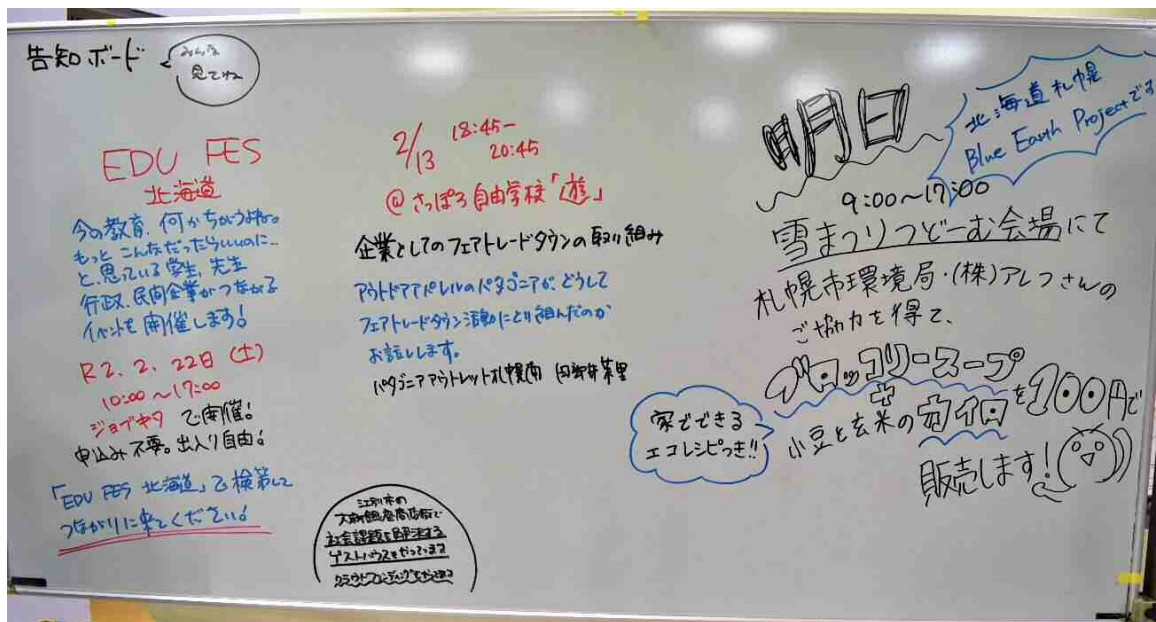 告知ボード
みんな
見てね
EDU FES
北海道
今の教育、何かちがうよね。
もっとこんなだったらいいのに…
と思っている学生、先生
行政、民間企業がつながる
イベントを開催します!
R2.2.22日(土)
10:00〜17:00
ジョブキタで開催!
申込み不要。出入り自由!
「EDU FES 北海道」で検索して
つながりに来てください!
2/13 18:45-
20:45
@さっぽろ自由学校「遊」
企業としてのフェアトレードタウンの取り組み
アウトドアアパレルのパタゴニアが、どうして
フェアトレードタウン活動にとり組んだのか
お話しします。
パタゴニアアウトレット札幌南
江別市の
大麻銀座商店街で
社会課題を解決する
ゲストハウスをやっています
クラウドファンディングをやってます
明日
北海道札幌
Blue Earth Projectです
9:00〜17:00
雪まつりつどーむ会場にて
札幌市環境局・(株)アレフさんの
ご協力を得て、
ブロッコリースープ
+
小豆と玄米のカイロを100円で
販売します!
家でできる
エコレシピつき!!